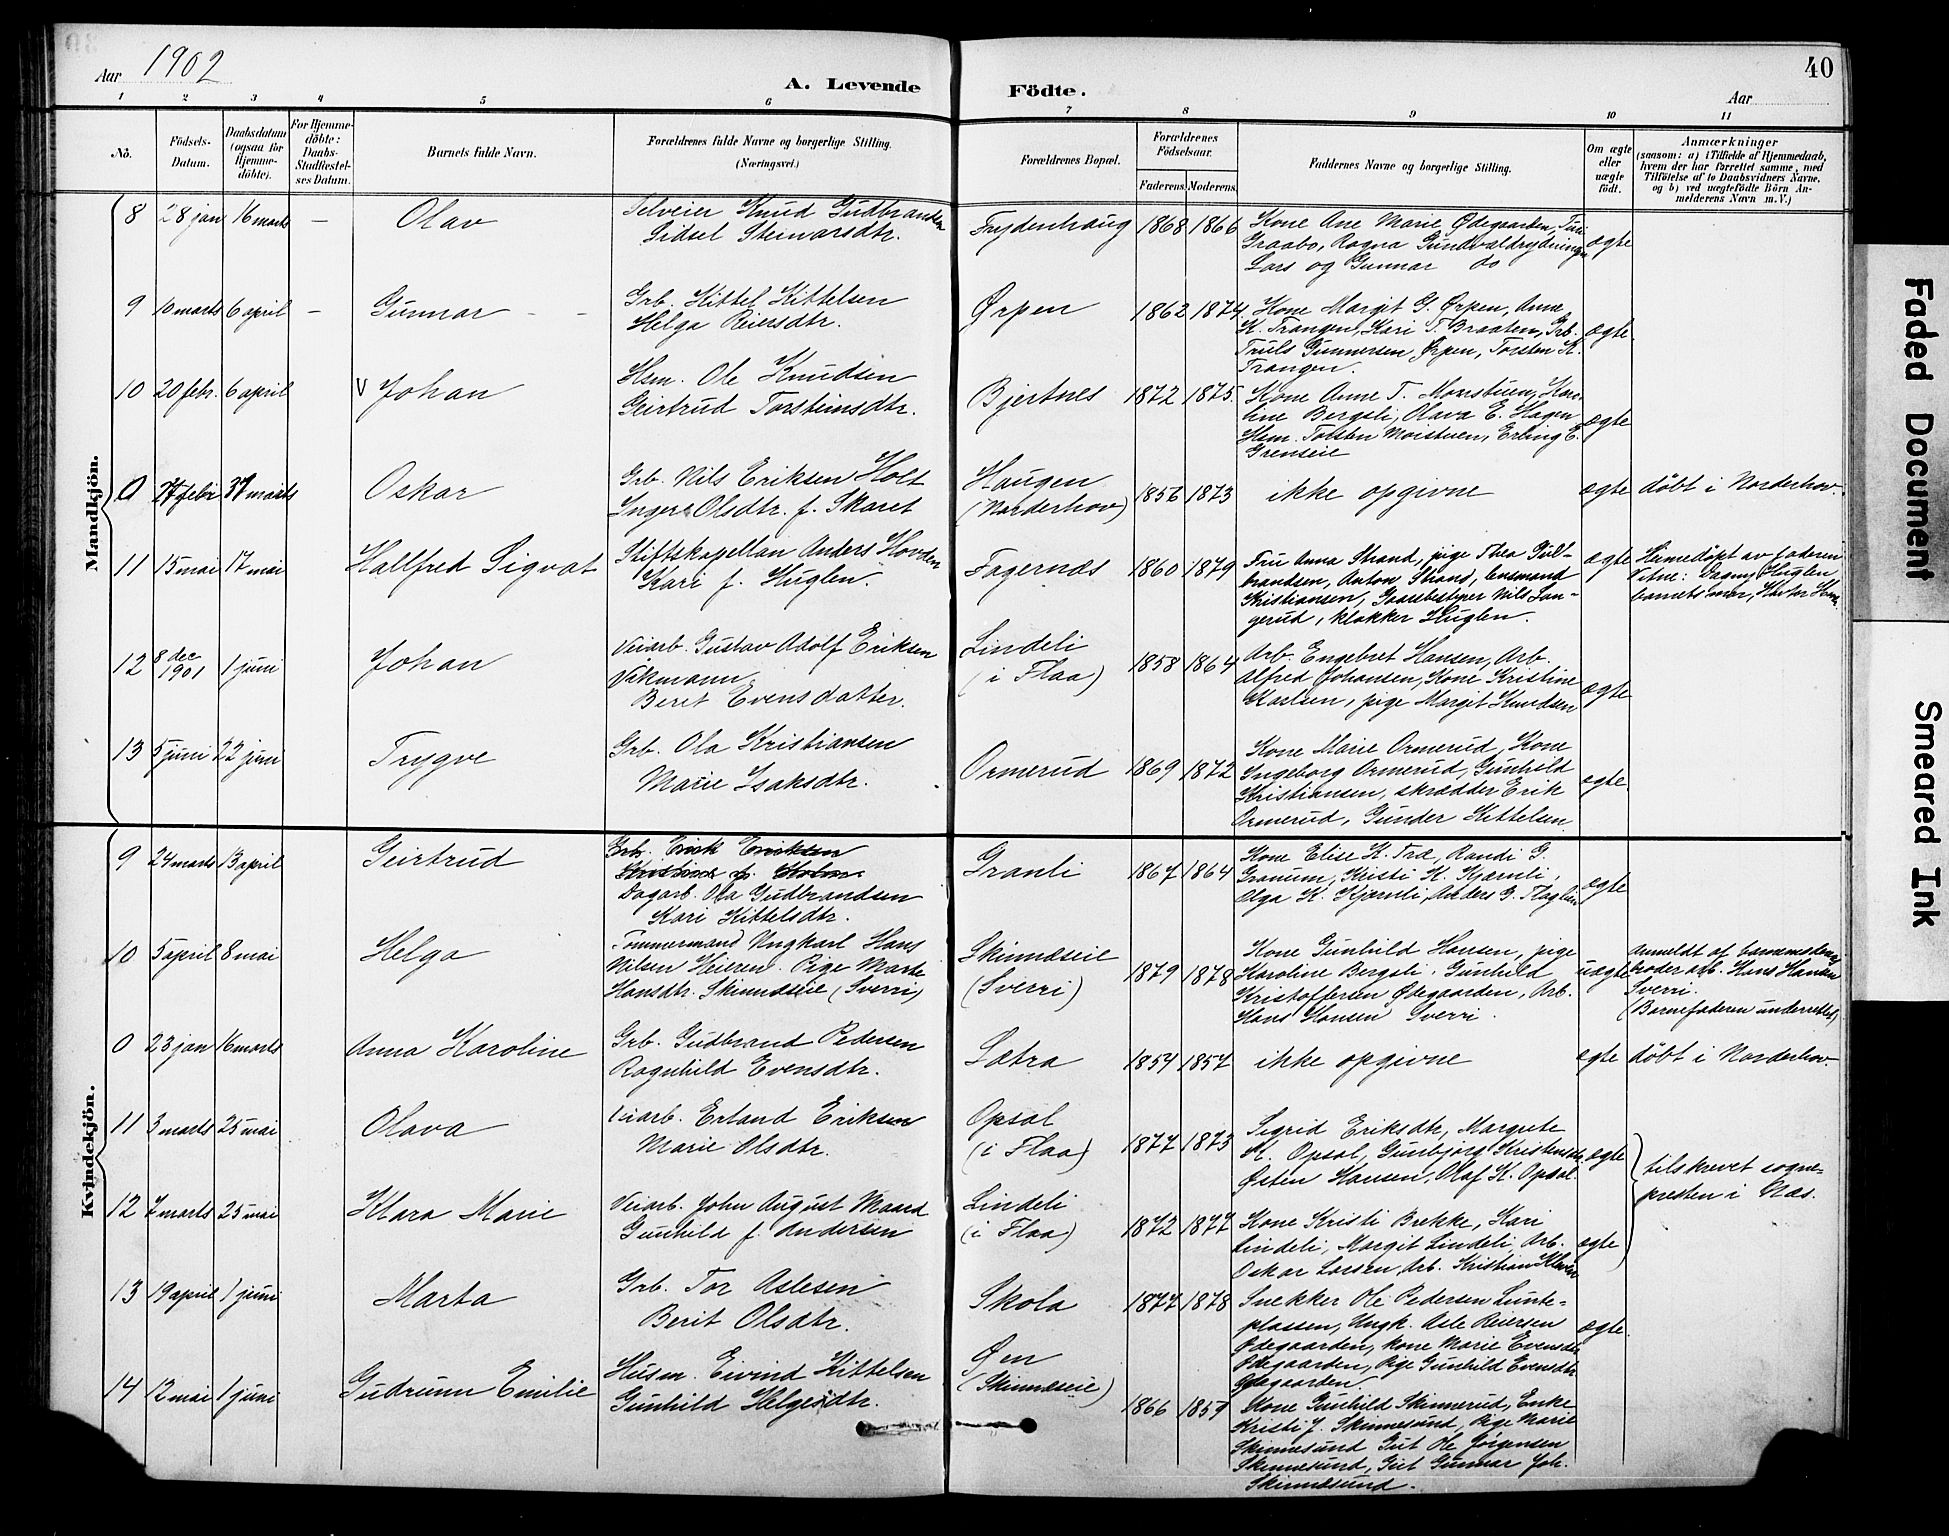 Aar 1902
A. Levende Födte.
40
Aar
1 2 3 4 5 6 7 8 9 10 11
Nö.
Födsels-Datum.
Daabsdatum (ogsaa for Hjemme-döbte).
For Hjemme-döbte: Daabs-Stadfæstel-ses Datum.
Barnets fulde Navn.
Forældrenes fulde Navne og borgerlige Stilling. (Næringsvei.)
Forældrenes Bopæl.
Forældrenes Födselsaar.
Faderens. Moderens.
Faddernes Navne og borgerlige Stilling.
Om ægte eller uægte født.
Anmærkninger (saasom: a) i Tilfælde af Hjemmedaab, hvem der har forrettet samme, med Tilföielse af to Daabsvidners Navne, og b) ved uægtefödte Börn An-melderens Navn m. V.)
Mandkjön.
8 28 jan 16 marts – Olav
Selveier Knud Gudbrandsen
Sidsel Steinarsdtr.
Frydenhaug 1868 1866
Kone Ane Marie Ødegaarden, Turi
Graabo, Ragna Gundvaldrydningen
Lars og Gunnar do
ægte
9 10 marts 6 april – Gunnar
Grb. Kittel Kittelsen
Helga Reiersdtr.
Ørpen 1862 1874
Kone Margit G. Ørpen, Anne
K. Trangen, Kari T. Braaten, Grb.
Truls Gunnersen Ørpen, Torsten K.
Trangen.
ægte.
10 20 febr. 6 april V Johan
Hsm. Ole Knudsen
Geirtrud Torsteinsdtr.
Bjertnes 1872 1875.
Kone Anne T. Moustuen, Karo-
line Bergsli, Olava E. Hagen
Hsm. Torsten Moistuen, Erling E.
Grenseie
ægte
0 febr marts Oskar
Grb. Nils Eriksen Holt
Inger Olsdtr. f. Skaret
Haugen
(Norderhov)
1856 1873 ikke opgivne ægte döbt i Norderhov.
11 15 mai 17 mai Hallfred Sigvat
Stiftskapellan Anders Hovden
Kari f. Huglen.
Fagernæs 1860 1879
Fru Anna Strand, pige Thea Gul-
brandsen, Anton Strand, lensmand
Kristiansen, Gaardbestyrer Nils Lan-
gerud, klokker Huglen.
ægte
Heimedöpt av faderen
Vitne: Dagny Huglen
barnets mor,
12 8 dec 1901 1 juni Johan
Veiarb. Gustav Adolf Eriksen
Vikmann
Beret Evensdatter.
Lindeli
(i Flaa)
1858 1864
Arb. Engebret Hansen, Arb.
Alfred Johansen, Kone Kristine
Karlsen, pige Margit Knudsen
ægte
13 5 juni 22 juni Trygve
Grb. Ola Kristiansen
Marie Isaksdtr.
Ormerud 1869 1872
Kone Marie Ormerud, Kone
Ingeborg Ormerud, Gunhild
Kristiansen, skrædder Erik
Ormerud, Gunder Kittelsen
ægte.
Kvindekjön.
9 24 marts 13 april Geirtrud
Grb. Erik Eriksen
Kristine f. Holm
Dagarb. Ola Gudbrandsen
Kari Kittelsdtr.
Granli 1867 1864
Kone Elise K. Træ, Randi G.
Granum, Kristi K. Kjæmli,
Olga K. Kjæmli, Anders G. Flaglien
ægte
10 5 april 8 mai Helga
Tømmermand Ungkarl Hans
Nilsen Heieren. Pige Marte
Hansdtr. Skinnæseie (Sverri)
Skinnæseie
(Sverri)
1879 1878
Kone Gunhild Hansen, pige
Karoline Bergsli, Gunhild
Kristoffersen Ødegaarden, Arb.
Hans Hansen Sverri.
uægte
Anmeldt af barnemoderens
broder arb. Hans Hansen
Sverri.
(Barnefaderen underrettet)
0 23 jan 16 marts Anna Karoline
Grb. Gudbrand Pedersen
Ragnhild Evensdtr.
Sætra 1854 1857 ikke opgivne ægte döbt i Norderhov.
11 3 marts 25 mai Olava
Veiarb. Erland Eriksen
Marie Olsdtr.
Opsal
(i Flaa)
1877 1873
Sigrid Eriksdtr, Margrete
K. Opsal, Gunbjørg Kristensdtr,
Østen Hansen, Olaf K. Opsal.
ægte
tilskrevet sogne-
presten i Næs.
12 7 marts 25 mai Klara Marie
Veiarb. John August Maard
Gunhild f. Andersen
Lindeli
(i Flaa)
1872 1877
Kone Kristi Brekke, Kari
Lindeli, Margit Lindeli, Arb.
Oskar Larsen, Arb. Kristian Kleven
ægte
13 19 april 1 juni Marta
Grb. Tor Aslesen
Berit Olsdtr.
Skola 1877 1878
Snekker Ole Pedersen Lunte-
plassen, Ungk. Asle Reiersen
Ødegaarden, kone Marie Evensdtr
Ødegaarden, Pige Gunhild Evensdtr
Ødegaarden
ægte.
14 12 mai 1 juni Gudrunn Emilie
Husm. Eivind Kittelsen
Gunhild Helgesdtr.
Øen
(Skinnæseie)
1866 1859
Kone Gunhild Skinnerud, Enke
Kristi J. Skinnesund, Pige Marie
Skinnesund Gut Ole Jørgensen
Skinnesund, Gut Gunnar Joh.
Skinnesund.
Faded Document
Smeared Ink